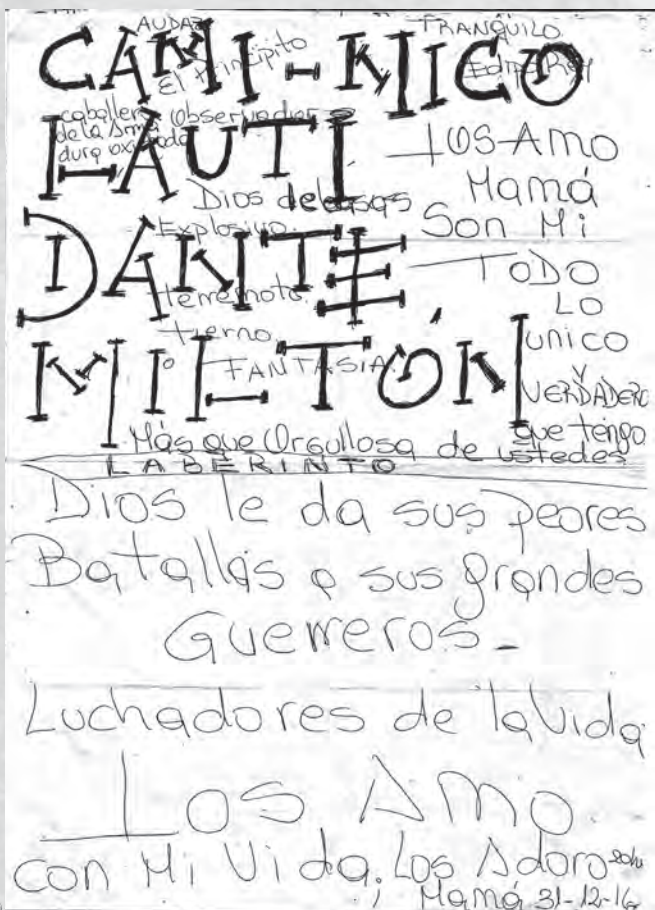 AUDAZ TRANQUILO
CAMI-MICO
El Principito Edipo Rey
caballero Observador
de la Arma
dura oxidada
HAUTI LOS AMO
Mamá
Dios de las
Explosivo. Son Mi
DANTE TODO
Terremoto. LO
tierno. unico
MILTÓN y
FANTASIA. VERDADERO
que tengo
Más que Orgullosa de ustedes
LABERINTO
Dios le da sus peores
Batallas a sus grandes
Guerreros-
Luchadores de la Vida
Los Amo
con Mi Vida; Los Adoro
Mamá 31-12-16